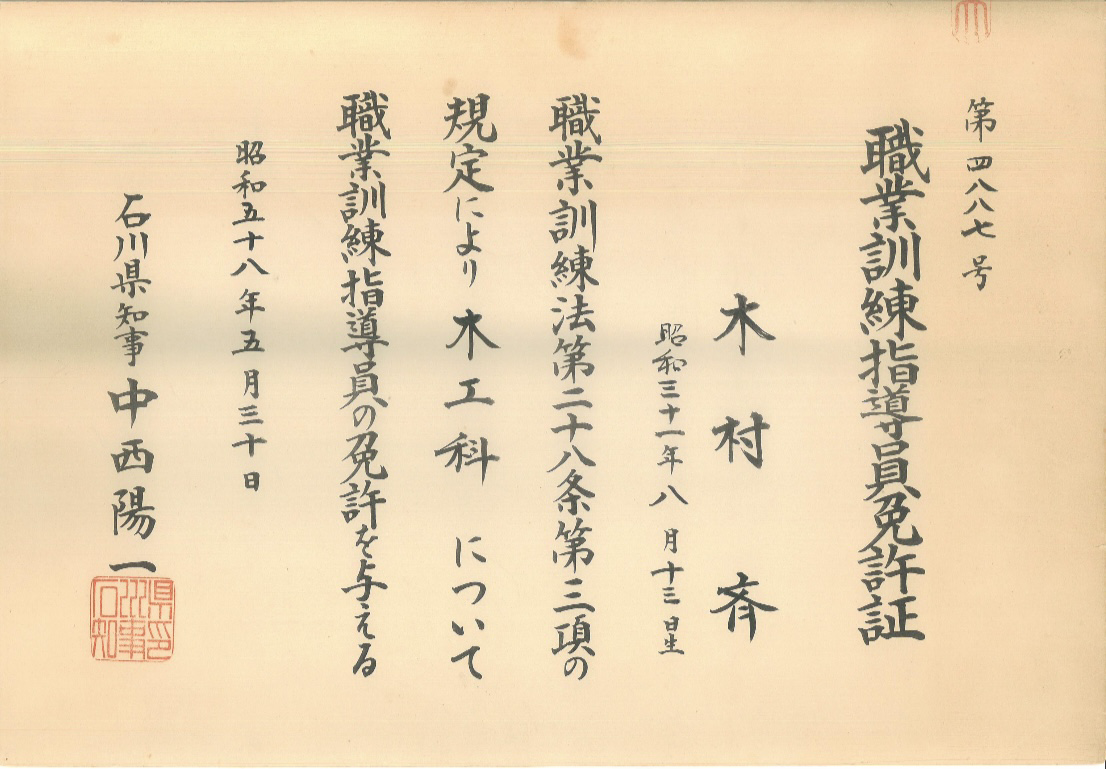 第四八八七号
職業訓練指導員免許証
木村斉
昭和三十一年八月十三日生
職業訓練法第二十八条第三項の
規定により木工科について
職業訓練指導員の免許を与える
昭和五十八年五月三十日
石川県知事中西陽一
石川県知事印